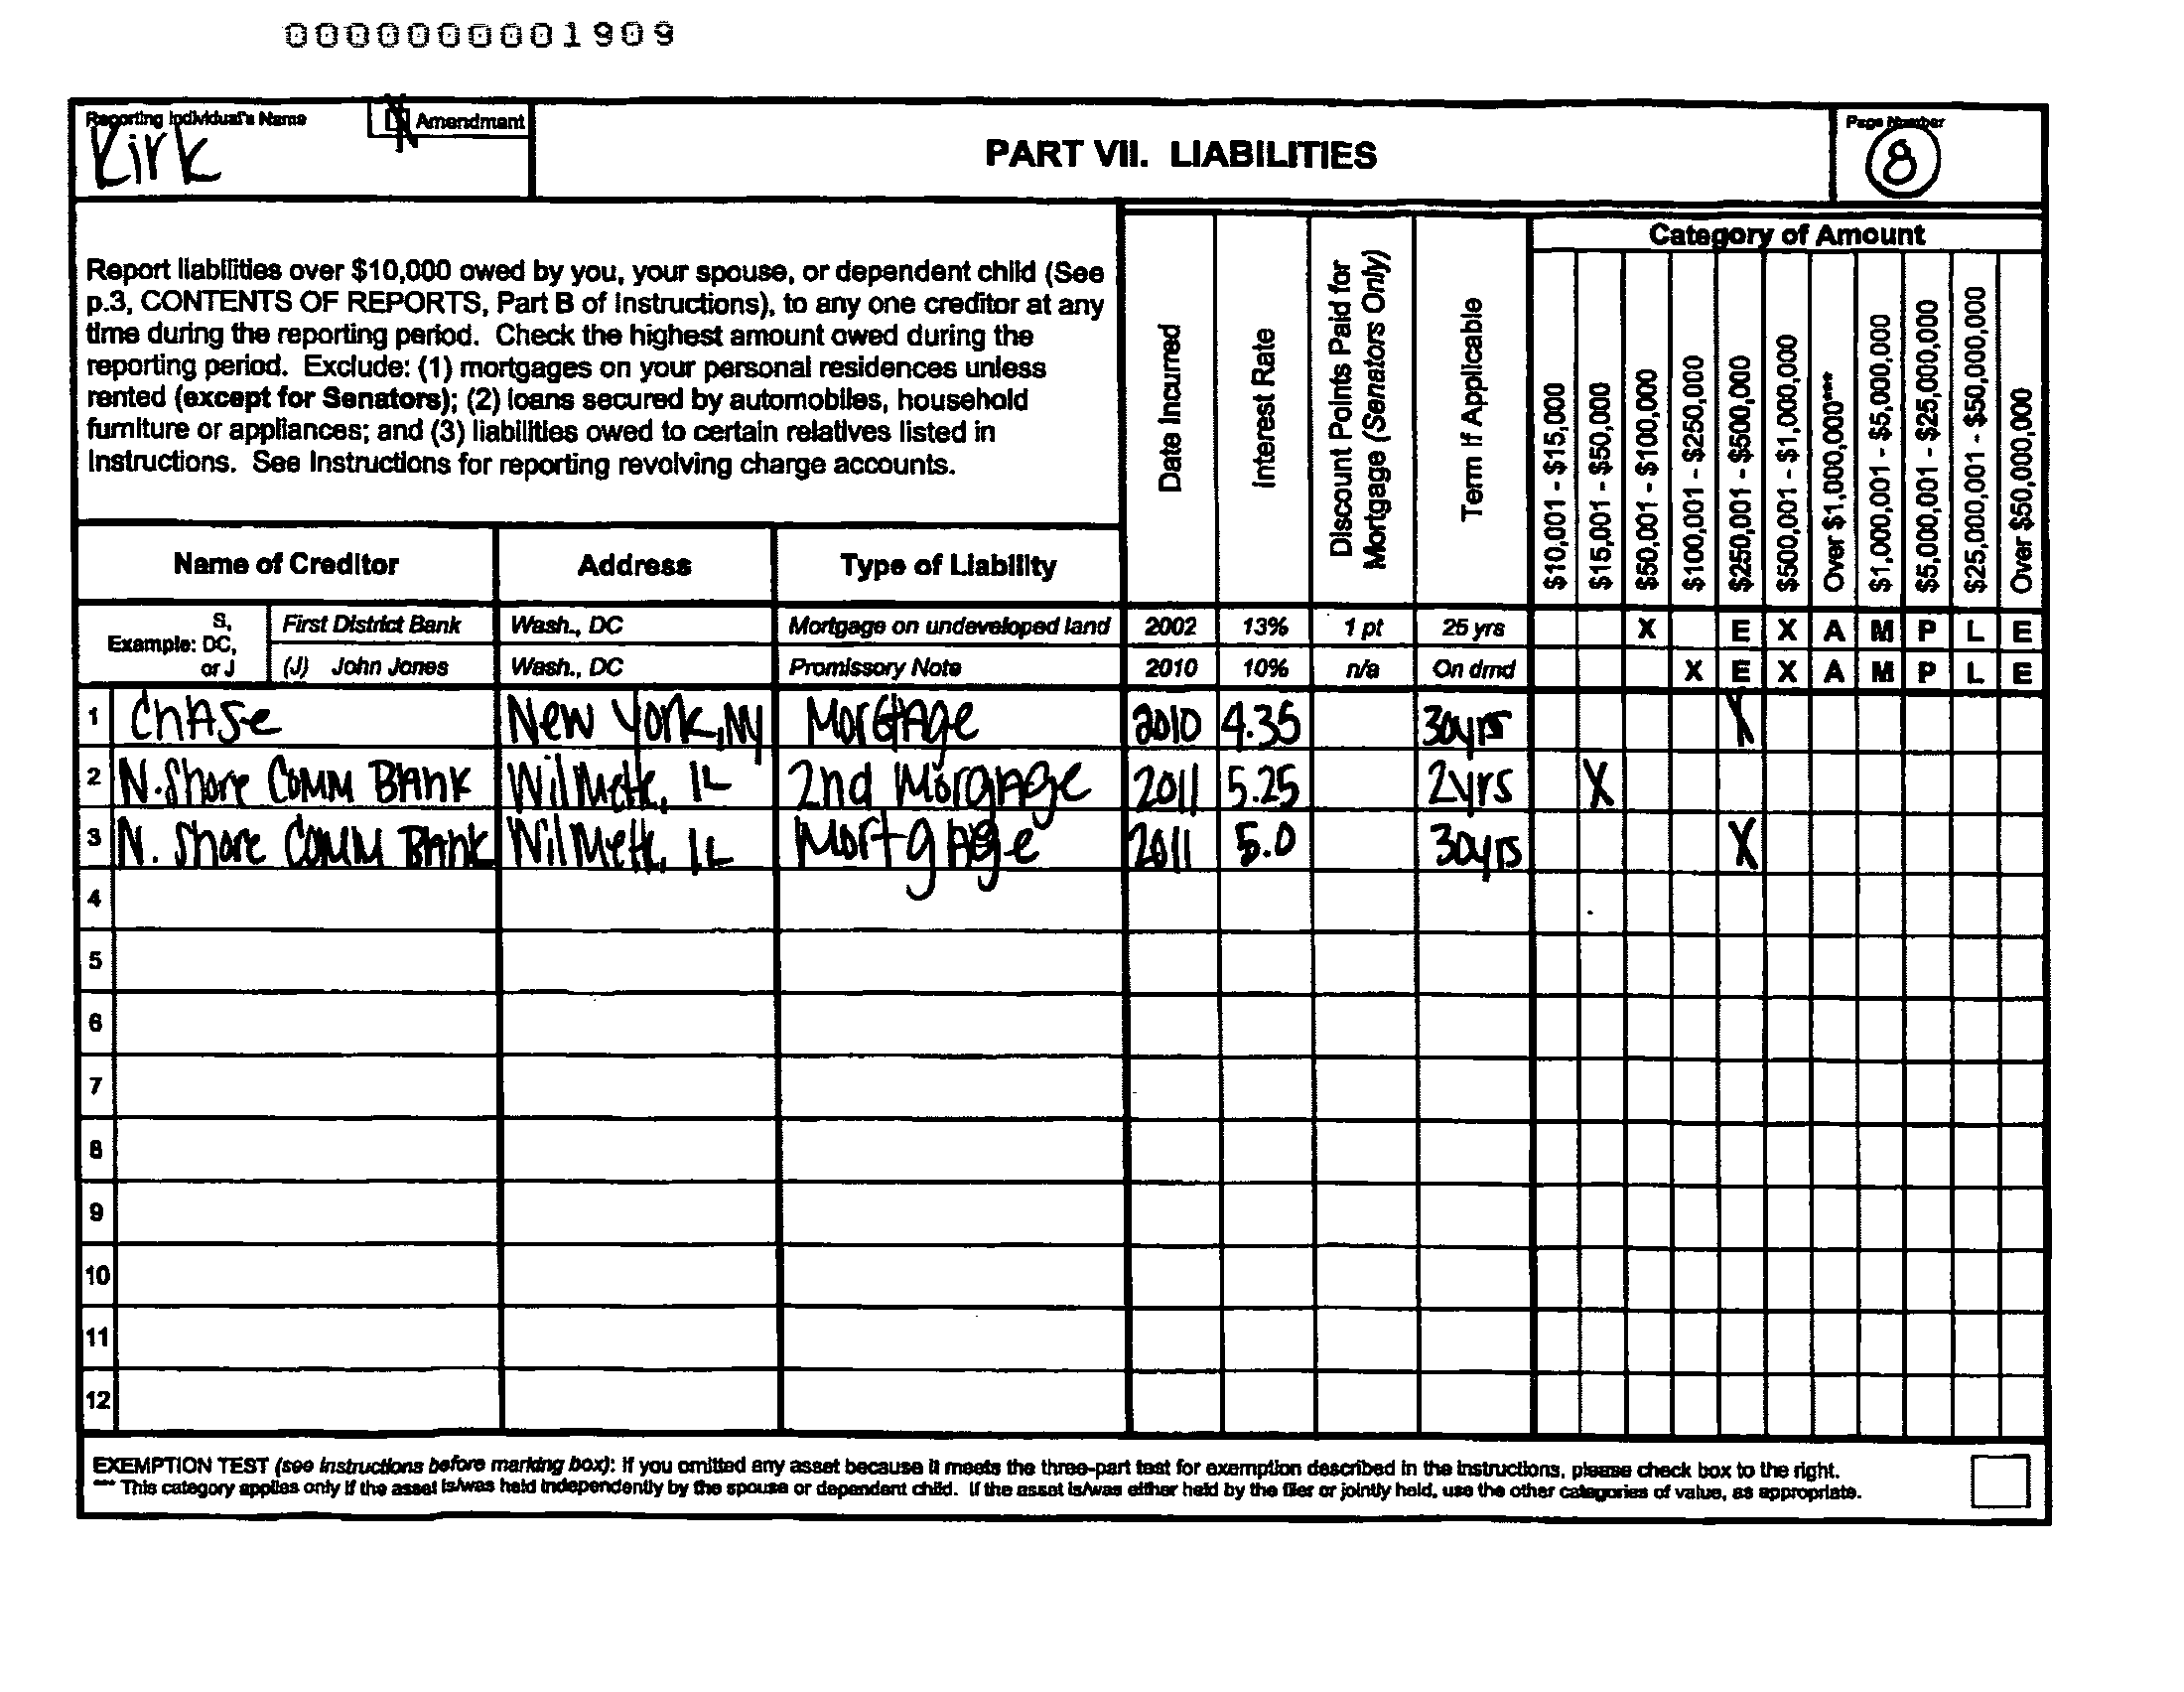 0000000001909
Reporting Individual's Name
Kirk
Amendment
PART VII. LIABILITIES
Page Number
8
Report liabilities over $10,000 owed by you, your spouse, or dependent child (See
p.3, CONTENTS OF REPORTS, Part B of Instructions), to any one creditor at any
time during the reporting period. Check the highest amount owed during the
reporting period. Exclude: (1) mortgages on your personal residences unless
rented (except for Senators); (2) loans secured by automobiles, household
furniture or appliances; and (3) liabilities owed to certain relatives listed in
Instructions. See Instructions for reporting revolving charge accounts.
Date Incurred
Interest Rate
Discount Points Paid for
Mortgage (Senators Only)
Term If Applicable
Category of Amount
$10,001 - $15,000
$15,001 - $50,000
$50,001 - $100,000
$100,001 - $250,000
$250,001 - $500,000
$500,001 - $1,000,000
Over $1,000,000***
$1,000,001 - $5,000,000
$5,000,001 - $25,000,000
$25,000,001 - $50,000,000
Over $50,000,000
Name of Creditor Address Type of Liability
Example: S, DC, or J
First District Bank Wash., DC Mortgage on undeveloped land 2002 13% 1 pt 25 yrs X E X A M P L E
(J) John Jones Wash., DC Promissory Note 2010 10% n/a On dmd X E X A M P L E
1 Chase New York, NY Mortgage 2010 4.35 30yrs X
2 N. Shore Comm Bank Wilmette, IL 2nd Morgnage 2011 5.25 2yrs X
3 N. Shore Comm Bank Wilmette, IL Mortgage 2011 5.0 30yrs X
4
5
6
7
8
9
10
11
12
EXEMPTION TEST (see instructions before marking box): If you omitted any asset because it meets the three-part test for exemption described in the instructions, please check box to the right.
*** This category applies only if the asset is/was held independently by the spouse or dependent child. If the asset is/was either held by the filer or jointly held, use the other categories of value, as appropriate.